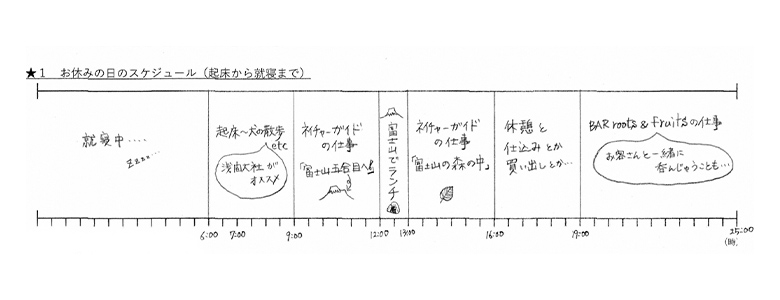 ★1 お休みの日のスケジュール(起床から就寝まで)
就寝中....
zzzz...
起床〜犬の散歩
etc
浅間大社が
オススメ
ネイチャーガイド
の仕事
「富士山五合目へ」
富士山でランチ
ネイチャーガイド
の仕事
「富士山の森の中」
休憩と
仕込みとか
買い出しとか…
BAR roots & fruitsの仕事
お客さんと一緒に
呑んじゃうことも…
6:00 7:00 9:00 12:00 13:00 16:00 19:00 25:00
(時)